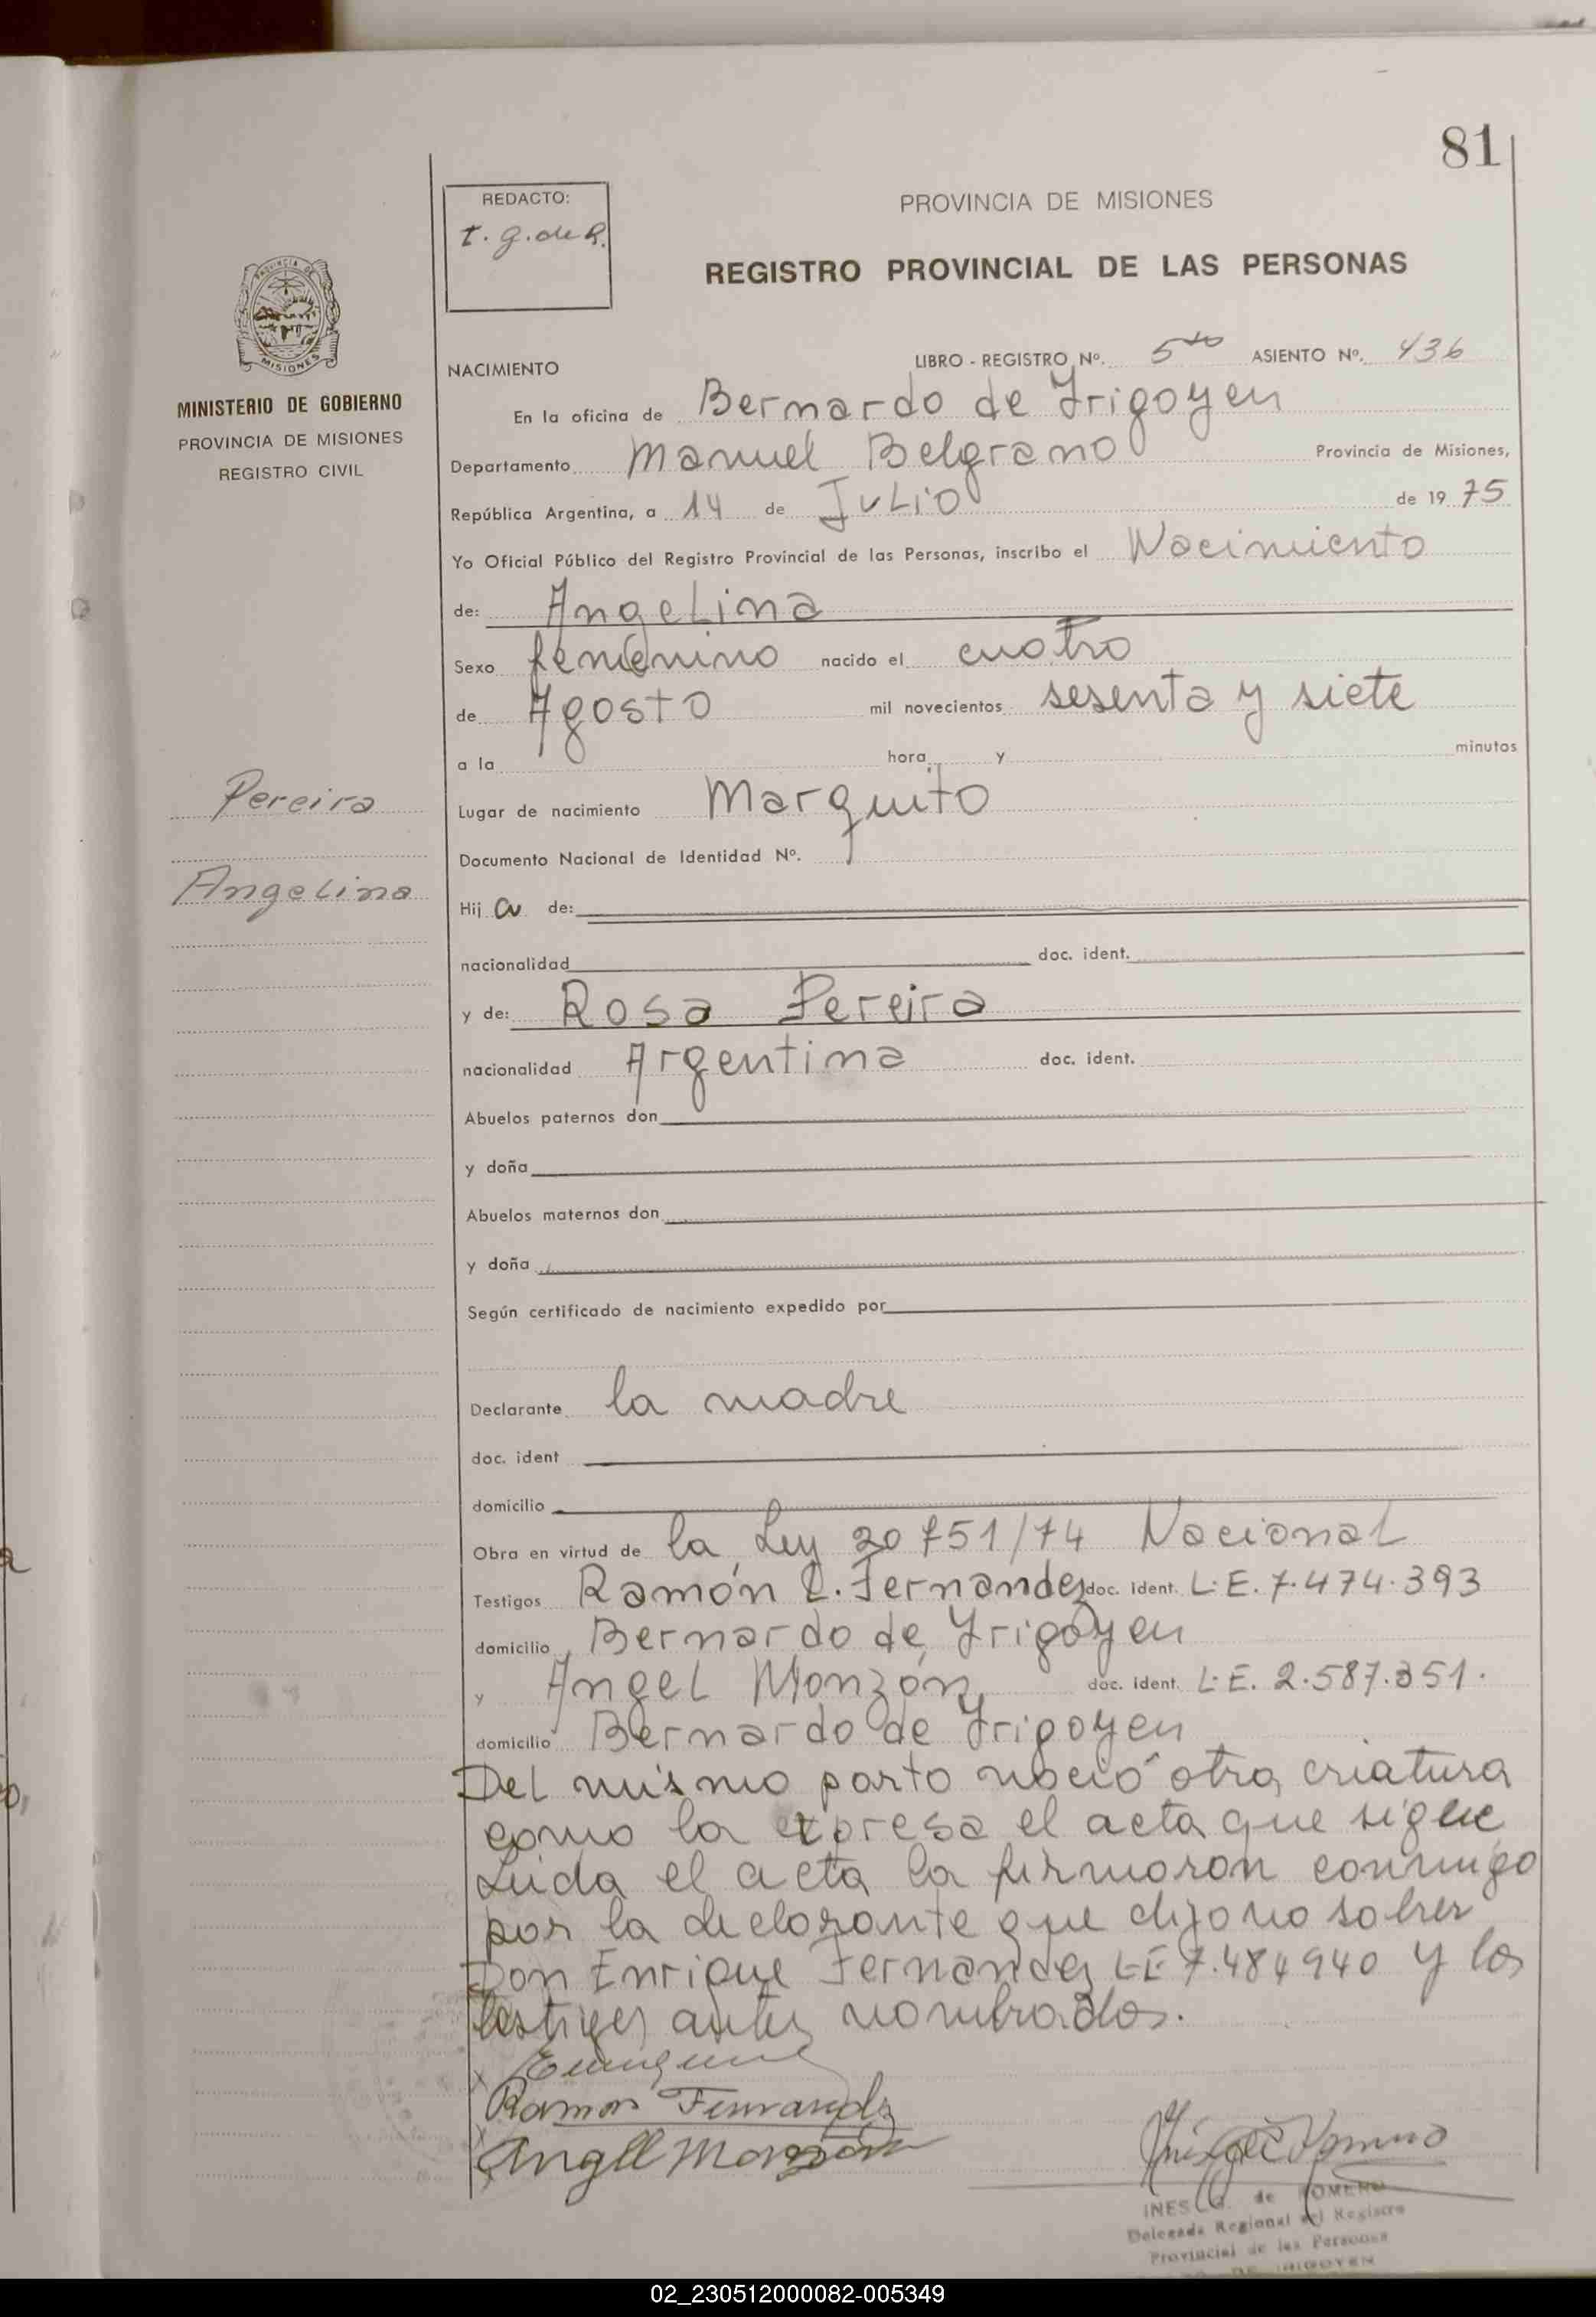 81
REDACTO:
PROVINCIA DE MISIONES
REGISTRO PROVINCIAL DE LAS PERSONAS
PROVINCIA DE
MISIONES
MINISTERIO DE GOBIERNO
PROVINCIA DE MISIONES
REGISTRO CIVIL
Pereira
Angelina
NACIMIENTO
LIBRO - REGISTRO Nº. 5to ASIENTO Nº. 436
En la oficina de Bernardo de Yrigoyen
Departamento Manuel Belgrano Provincia de Misiones,
República Argentina, a 14 de JuLio de 19 75
Yo Oficial Público del Registro Provincial de las Personas, inscribo el Nacimiento
de: AngeLina
Sexo femenino nacido el cuatro
de Agosto mil novecientos sesenta y siete
a la hora y minutos
Lugar de nacimiento Marquito
Documento Nacional de Identidad Nº.
Hij a de:
nacionalidad doc. ident.
y de: Rosa Pereira
nacionalidad Argentina doc. ident.
Abuelos paternos don
y doña
Abuelos maternos don
y doña
Según certificado de nacimiento expedido por
Declarante la madre
doc. ident
domicilio
Obra en virtud de la Ley 20751/74 Nacional
Testigos Ramón Fernandez doc. ident. L.E. 7.474.393
domicilio Bernardo de Yrigoyen
y Angel Monzón doc. ident. L.E. 2.587.351.
domicilio Bernardo de Yrigoyen
Del mismo parto nació otra criatura
como la expresa el acta que sigue
Leida el acta la firmaron conmigo
por la declarante que dijo no saber
Don Enrique Fernandez LE 7.484940 y los
testigos antes nombrados.
Enrique
Ramon Fernandez
Angel Monzon
INES G. de ROMERO
Delegada Regional del Registro
Provincial de las Personas
DE IRIGOYEN
02_230512000082-005349